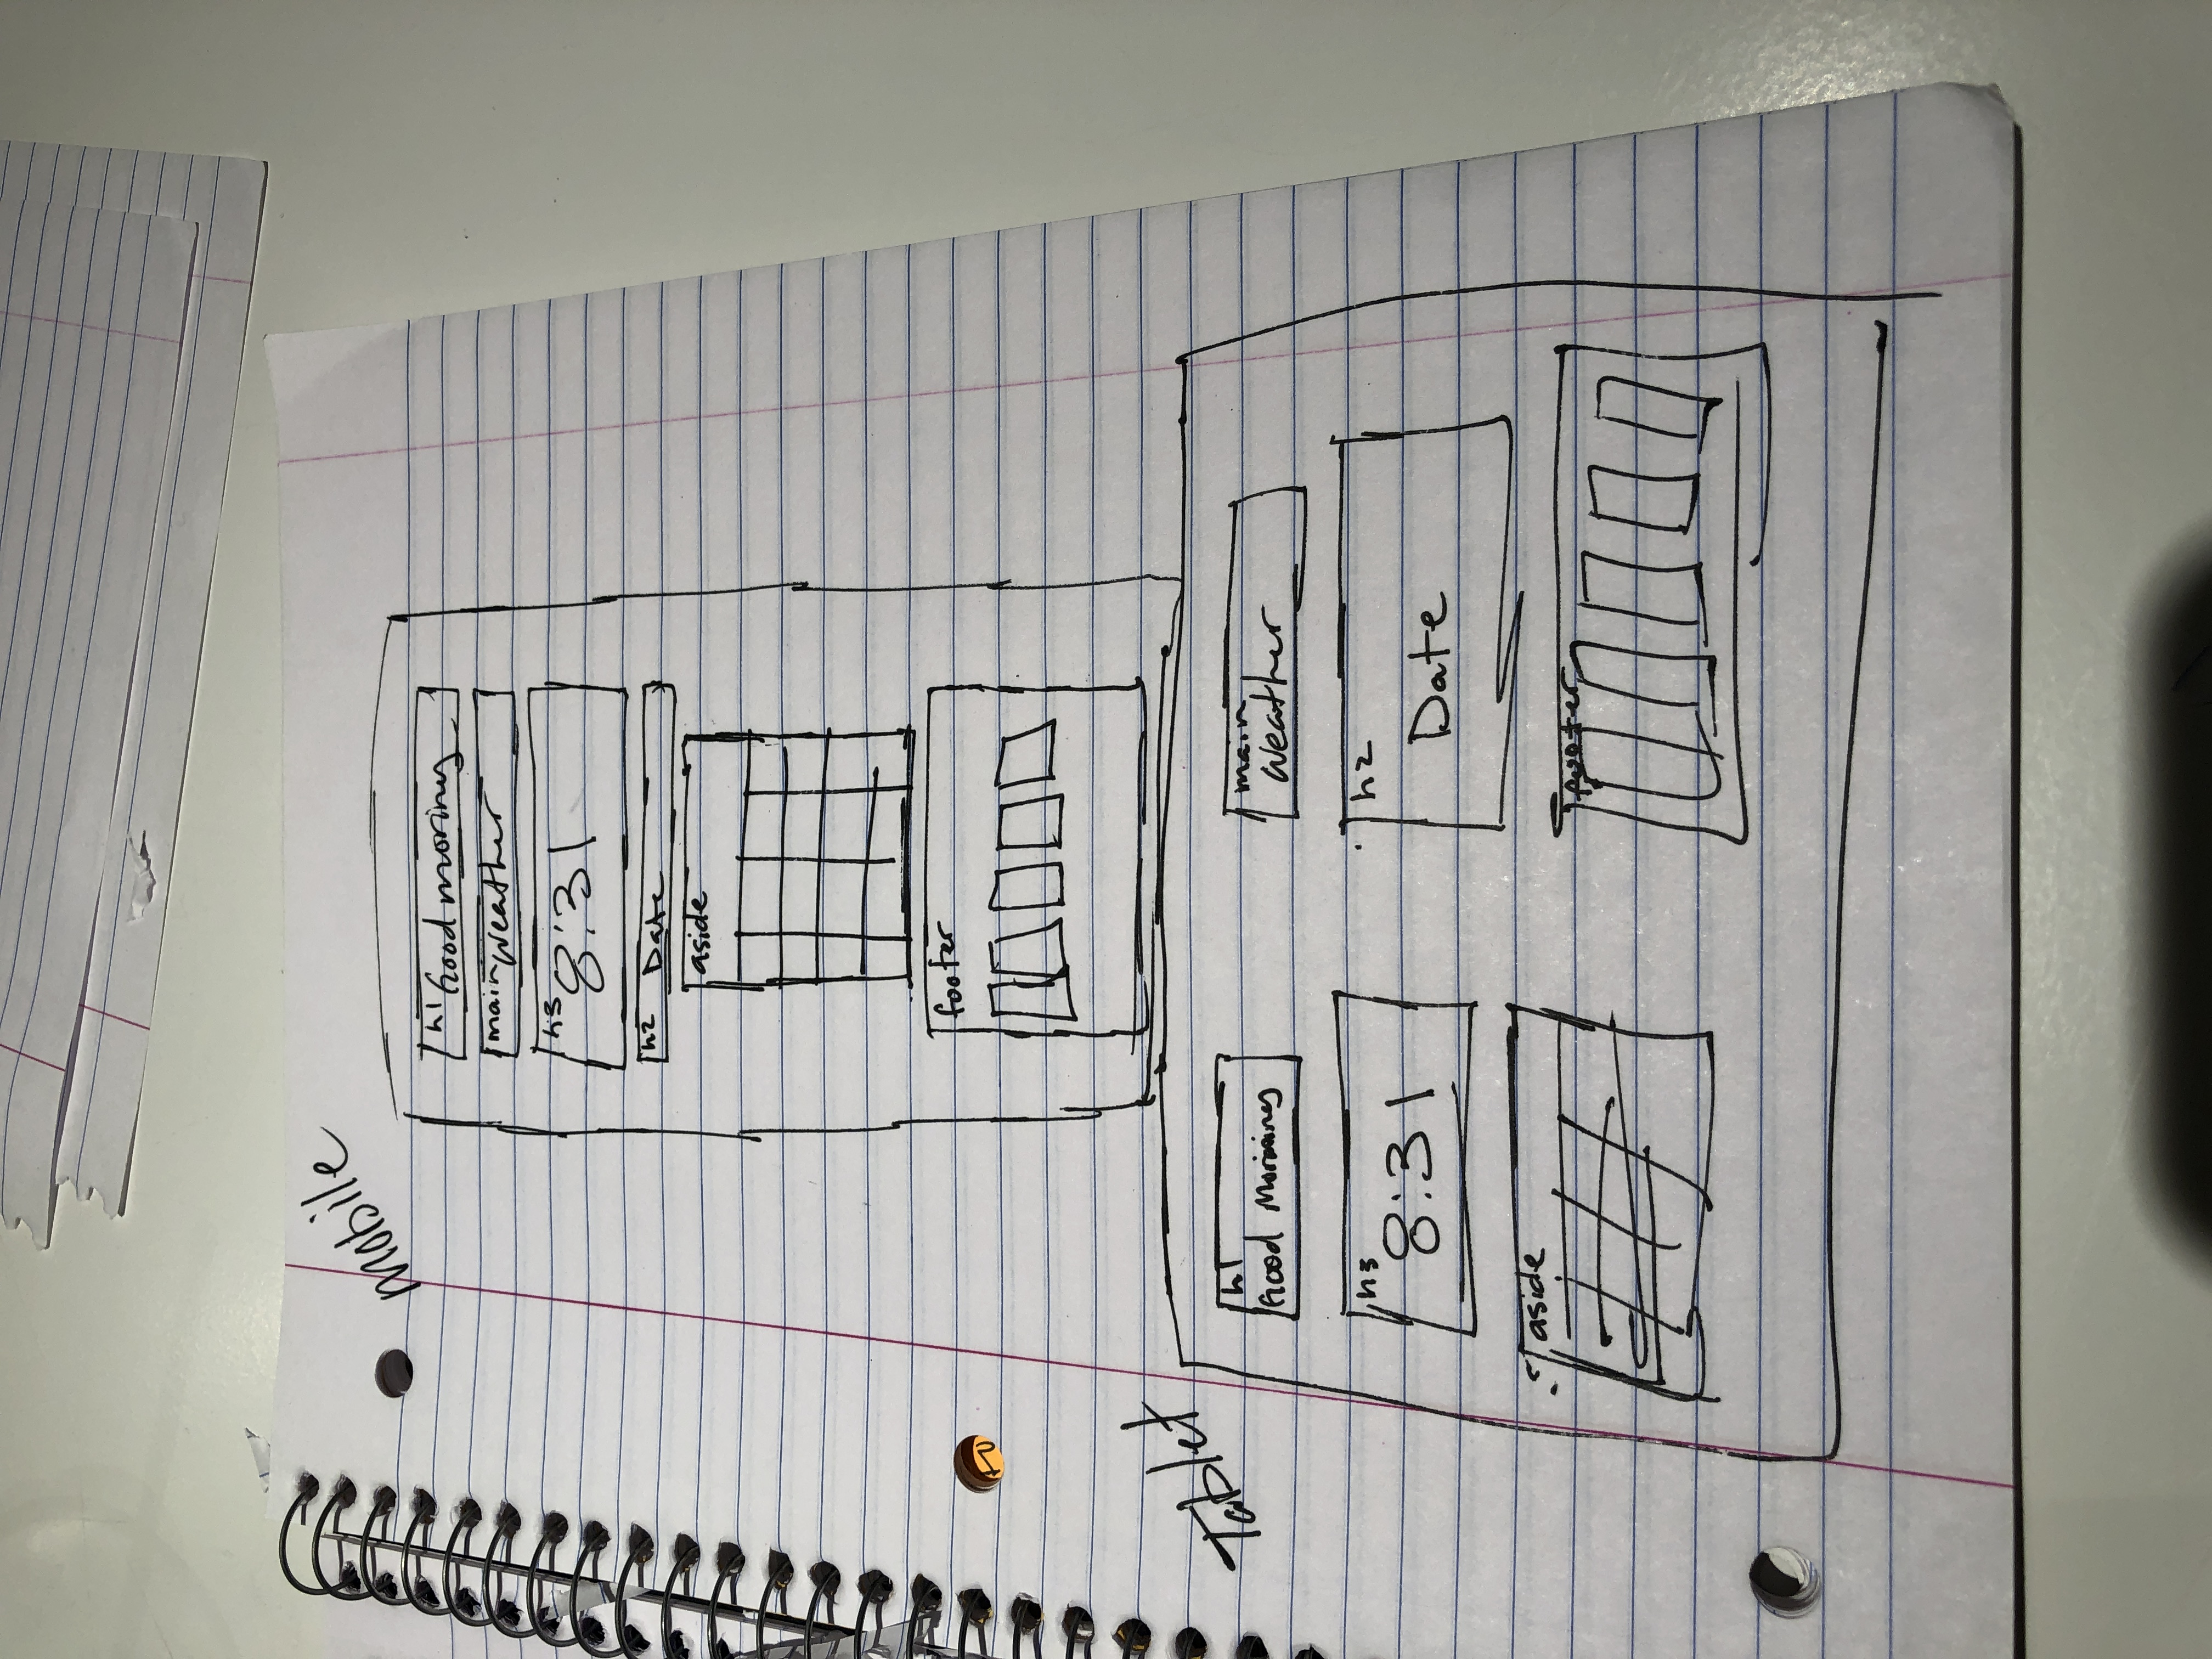 mobile
h1 Good moriny
main weather
h3 8:31
h2 Date
aside
footer
Tablet
h1
Good Morining
main
weather
h3
8:31
h2
Date
aside
footer